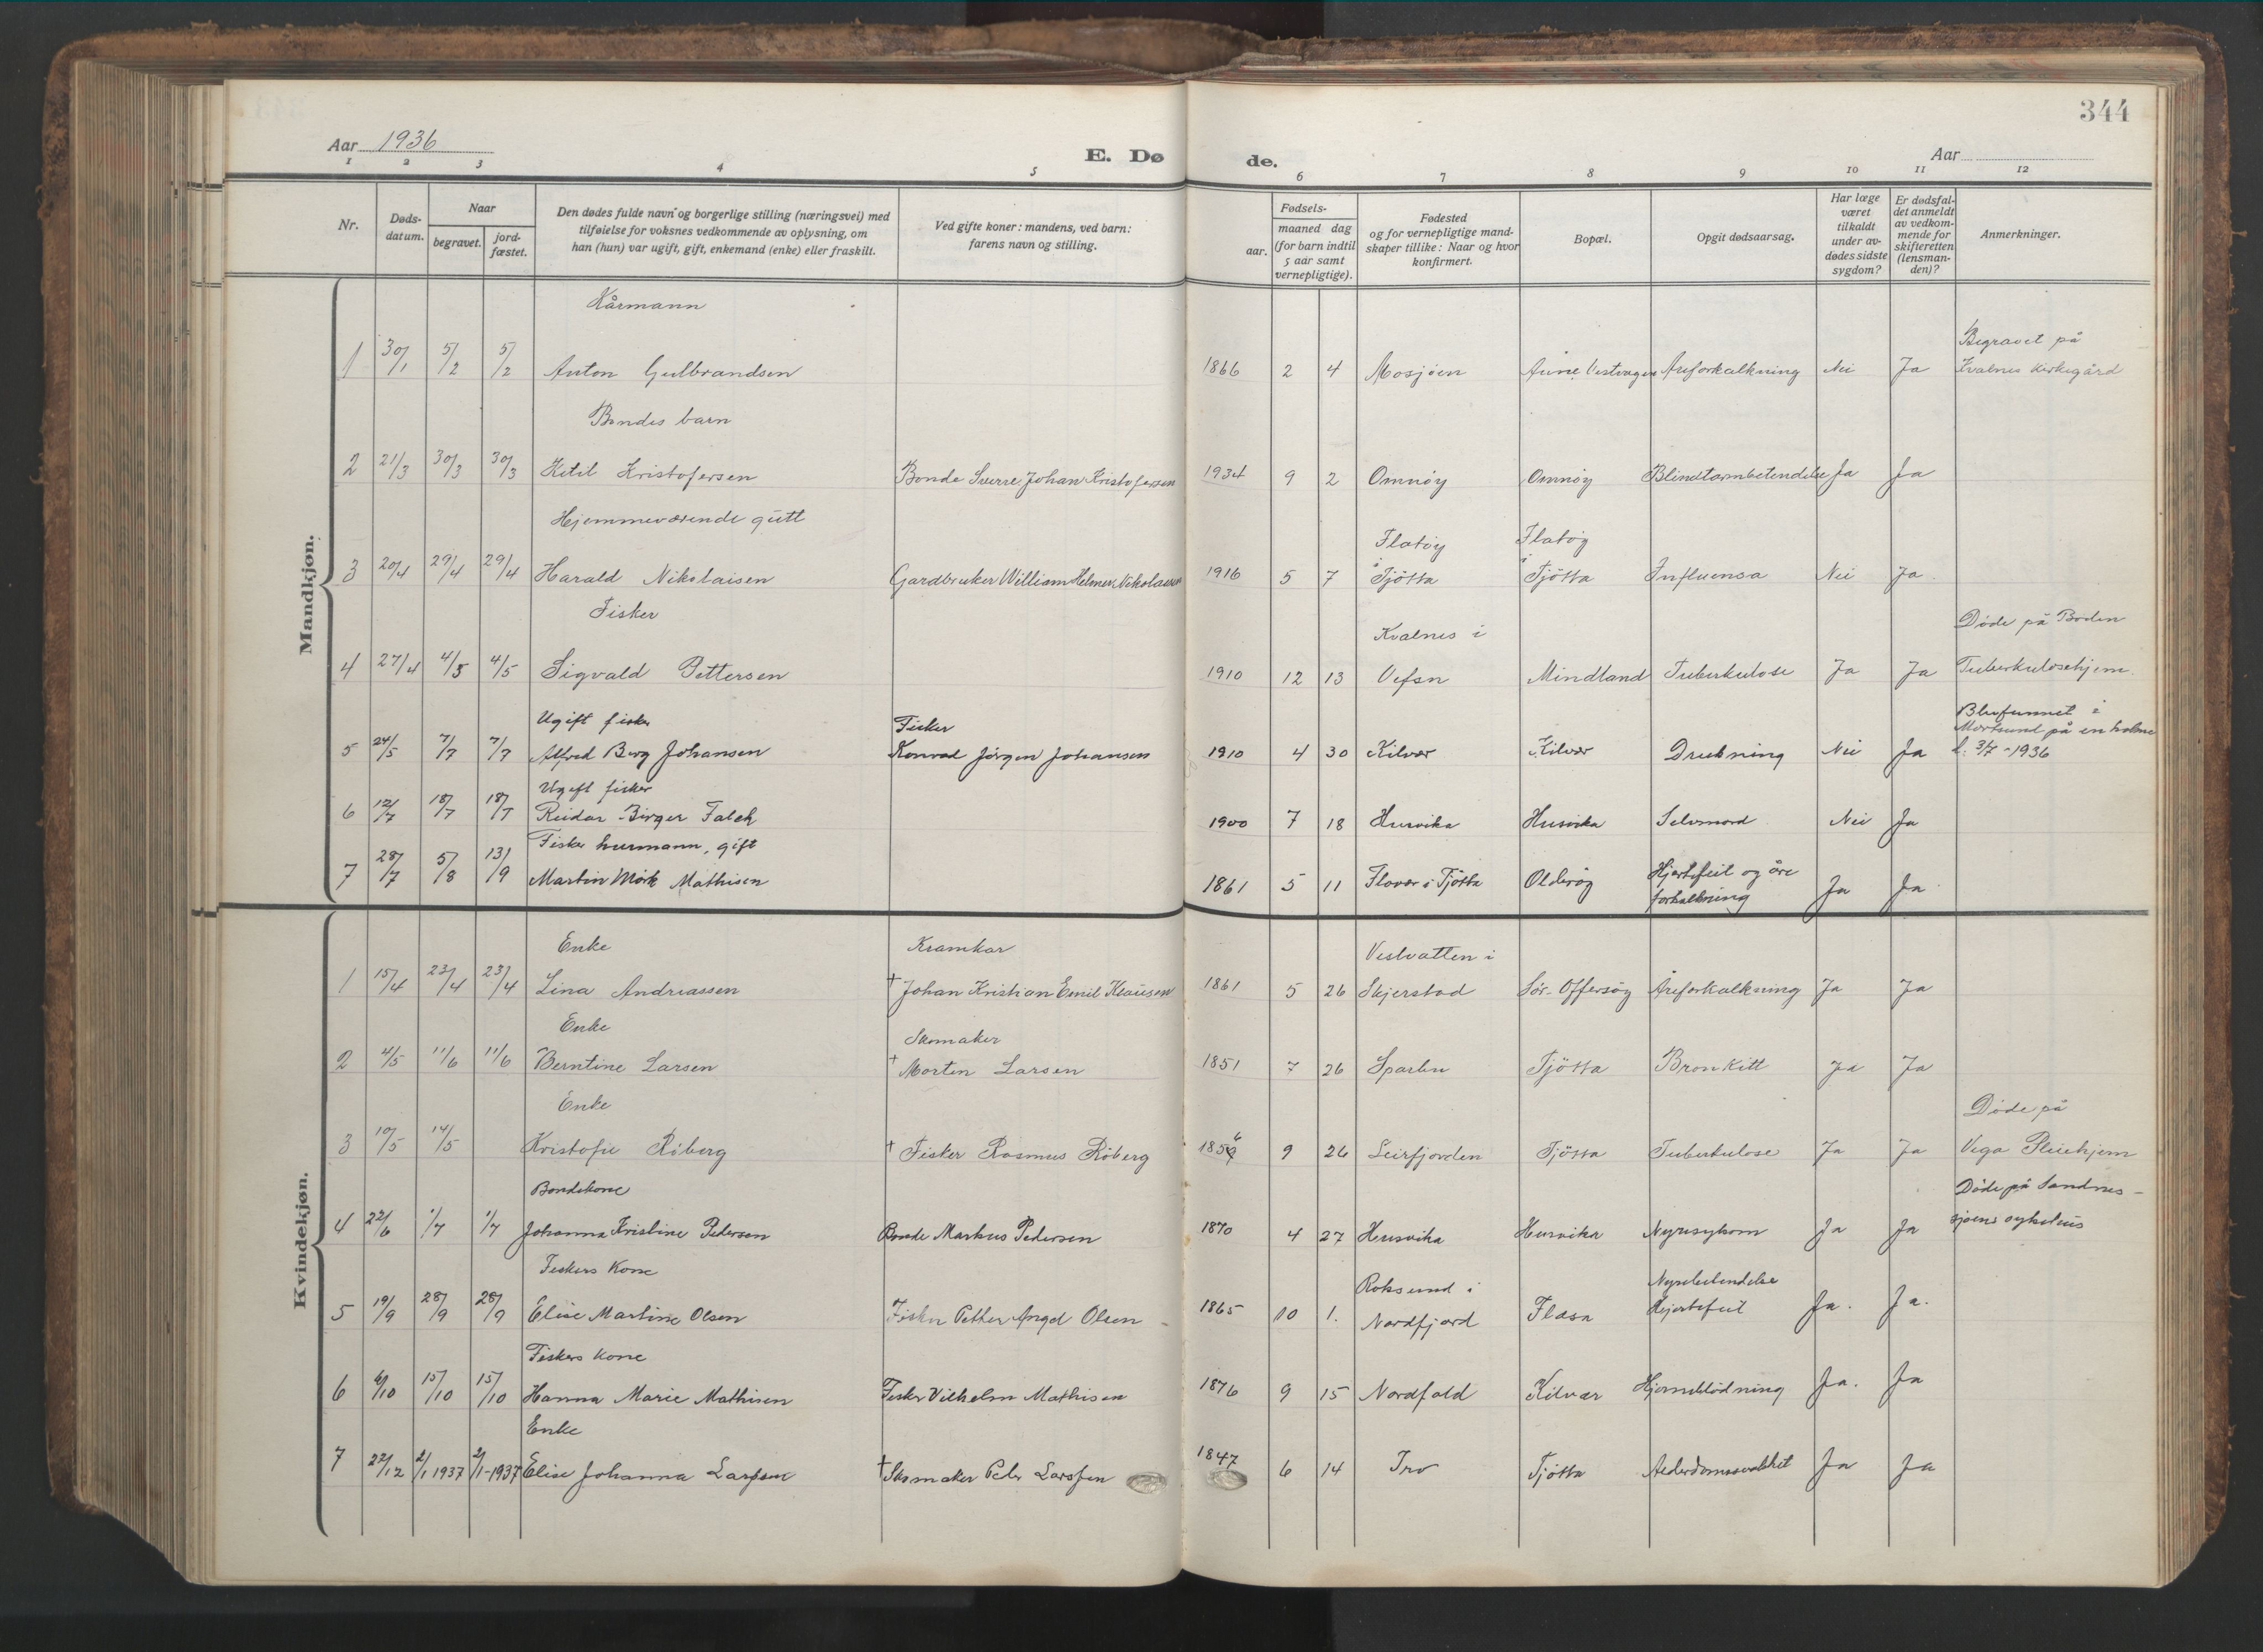 344
Aar 1936
E. Dø de.
Aar
1 2 3 4 5 6 7 8 9 10 11 12
Nr.
Døds-
datum.
Naar
begravet.
jord-
fæstet.
Den dødes fulde navn og borgerlige stilling (næringsvei) med
tilføielse for voksnes vedkommende av oplysning, om
han (hun) var ugift, gift, enkemand (enke) eller fraskilt.
Ved gifte koner: mandens, ved barn:
farens navn og stilling.
Fødsels-
aar.
maaned dag
(for barn indtil
5 aar samt
vernepligtige).
Fødested
og for vernepligtige mand-
skaper tillike: Naar og hvor
konfirmert.
Bopæl.
Opgit dødsaarsag.
Har læge
været
tilkaldt
under av-
dødes sidste
sygdom?
Er dødsfal-
det anmeldt
av vedkom-
mende for
skifteretten
(lensman-
den)?
Anmerkninger.
Mandkjøn.
Kårmann
Begravet på
1 30/1 5/2 5/2 Anton Gulbrandsen 1866 2 4 Mosjøen Åreforkalkning Nei Ja Kvalnes kirkegård
Bondes barn
2 21/3 30/3 30/3 Ketil Kristofersen Bonde Sverre Johan Kristofersen 1934 9 2 Omnöy Omnöy Blindtarmbetendelse Ja Ja
Hjemmeværende gutt Flatöy Flatöy
3 20/4 29/4 29/4 Harald Nikolaisen Gardbruker William Helmer Nikolaisen 1916 5 7 i Tjötta i Tjötta Influensa Nei Ja.
Fisker Kvalnes i Döde på Boden
4 27/4 4/5 4/5 Sigvald Pettersen 1910 12 13 Vefsn Mindland Tuberkulose Ja Ja Tuberkulosehjem.
Ugift fisker Fisker Blev funnet i
på en holme
5 24/5 7/7 7/7 Alfred Berg Johansen Konrad Jörgen Johansen 1910 4 30 Kilvær Kilvær Drukning Nei Ja d. 3/7-1936
Ugift fisker
6 12/7 18/7 18/7 Reidar Birger Falch 1900 7 18 Husvika Husvika Selvmord Nei Ja
Fisker husmann, gift Hjertefeil og åre
7 28/7 5/8 13/9 Martin Mörk Mathisen 1861 5 11 Flovær i Tjötta Olderöy forkalkning Ja Ja
Kvindekjøn.
Enke Kramkar Vestvatten i
1 15/4 23/4 23/4 Lina Andreassen † Johan Kristian Emil Klausen 1861 5 26 Skjerstad Sör-Offersöy Åreforkalkning Ja Ja
Enke Skomaker
2 4/5 11/6 11/6 Berntine Larsen † Morten Larsen 1851 7 26 Sparbu Tjötta Bronkitt Ja Ja
Enke Döde på
3 10/5 14/5 Kristofie Röberg † Fisker Rasmus Röberg 1856 9 26 Leirfjorden Tjötta Tuberkulose Ja Ja Vega Pleiehjem
Bondekone Döde på Sandnes-
4 22/6 1/7 1/7 Johanna Kristine Pedersen Bonde Markus Pedersen 1870 4 27 Husvika Husvika Nyresykdom Ja Ja sjøens sykehus
Fiskers Kone Roksund i Nyrebetendelse
5 19/9 28/9 28/9 Elise Martine Olsen Fisker Petter Angel Olsen 1865 10 1. Nordfjord Flæsa Hjertefeil Ja. Ja.
Fiskers Kone
6 6/10 15/10 15/10 Hanna Marie Mathisen Fisker Vilhelm Mathisen 1876 9 15 Nordfold Kilvær Hjerneblödning Ja. Ja
Enke
7 22/12 2/1 1937 2/1-1937 Elise Johanna Larssen † Skomaker Peder Larssen 1847 6 14 Tro Tjötta Alderdomssvakhet Ja Ja